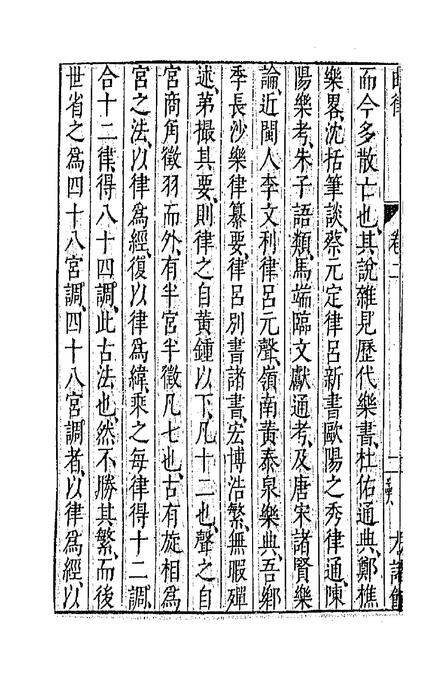 曲律 卷二
而今多散亡也、其說雜見歷代樂書、杜佑通典、鄭樵
樂畧、沈括筆談、蔡元定律呂新書、歐陽之秀律通、陳
陽樂考、朱子語類、馬端臨文獻通考、及唐宋諸賢樂
論、近閩人李文利律呂元聲、嶺南黃泰泉樂典、吾鄉
季長沙樂律纂要、律呂別書諸書、宏博浩繁、無暇殫
述、第撮其要、則律之自黃鍾以下、凡十二也、聲之自
宮商角徵羽而外、有半宮半徵、凡七也、古有旋相爲
宮之法、以律爲經、復以律爲緯、乘之每律得十二調、
合十二律、得八十四調、此古法也、然不勝其繁、而後
世省之爲四十八宮調、四十八宮調者、以律爲經、以